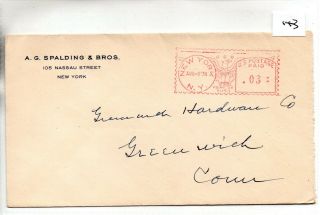 A. G. SPALDING & BROS.
105 NASSAU STREET
NEW YORK
NEW YORK
N.Y.
U.S. POSTAGE
PAID
.03
Greenwich Hardware Co
Greenwich
Conn